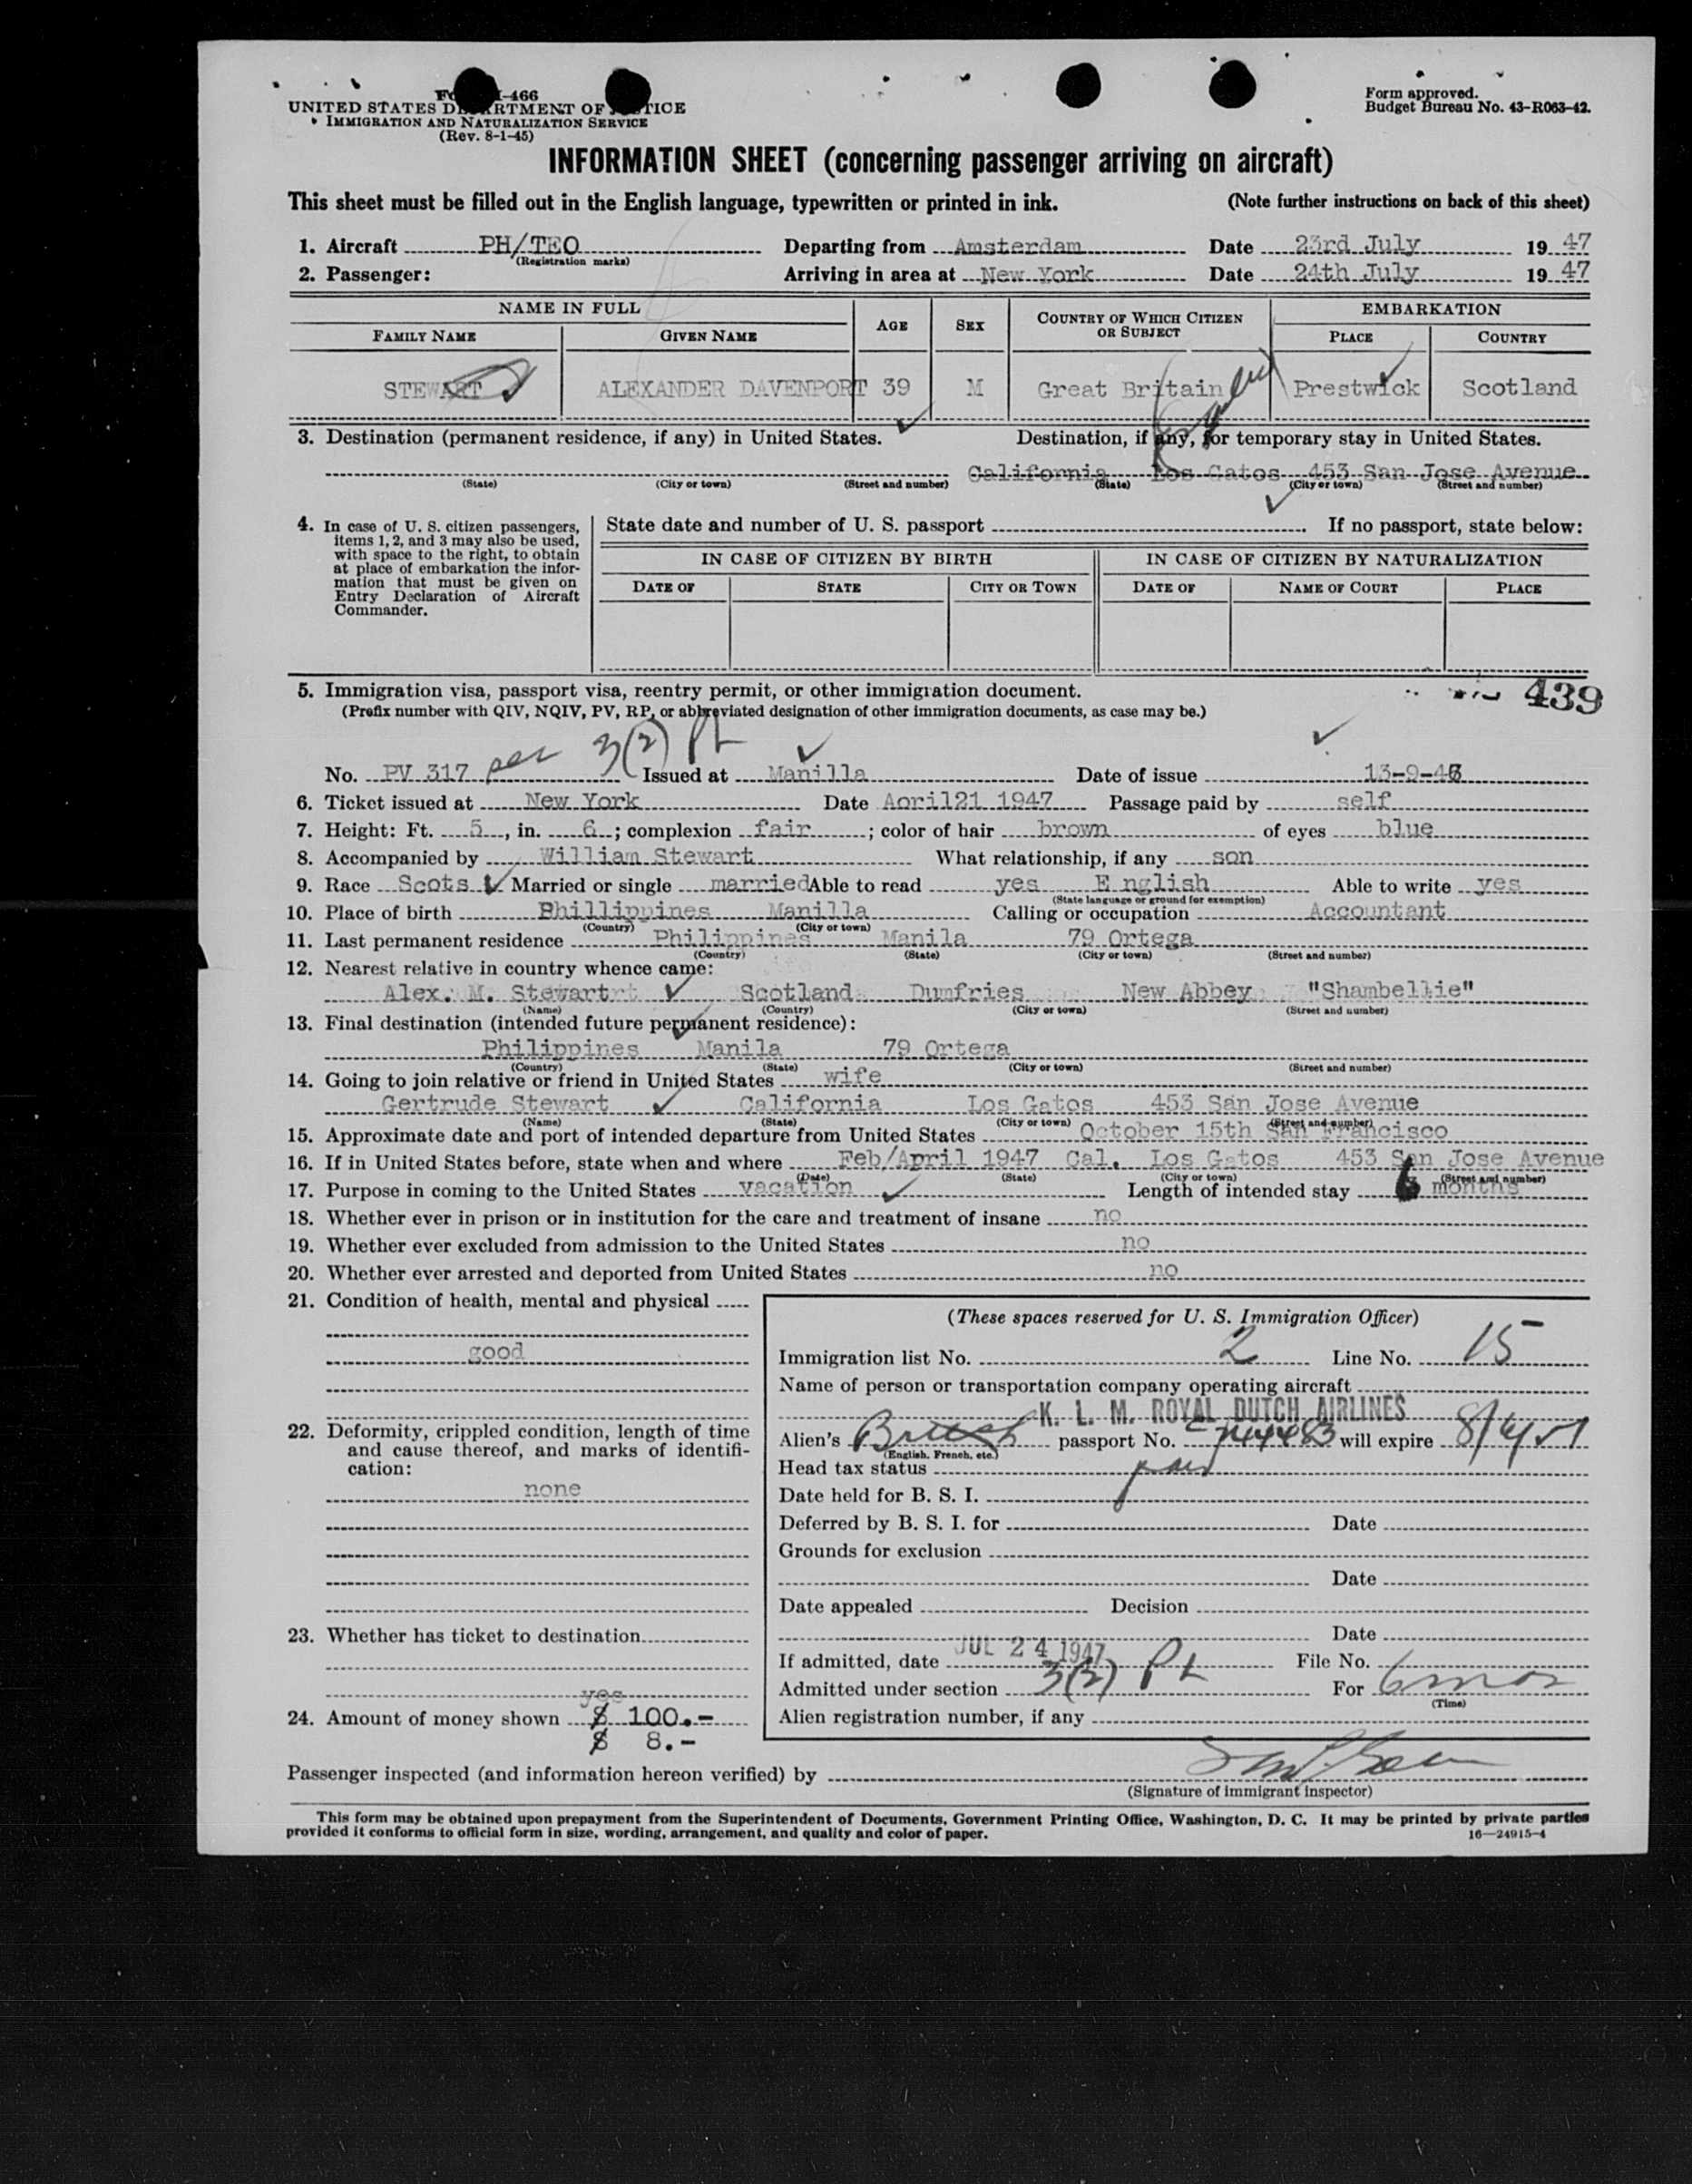 UNITED STATES DEPARTMENT OF JUSTICE
IMMIGRATION AND NATURALIZATION SERVICE
(Rev. 8-1-45)
Form approved.
Budget Bureau No. 43-R063-42.
INFORMATION SHEET (concerning passenger arriving on aircraft)
This sheet must be filled out in the English language, typewritten or printed in ink. (Note further instructions on back of this sheet)
1. Aircraft PH/TEO Departing from Amsterdam Date 23rd July 19 47
(Registration marks)
2. Passenger: Arriving in area at New York Date 24th July 19 47
NAME IN FULL AGE SEX COUNTRY OF WHICH CITIZEN OR SUBJECT EMBARKATION
FAMILY NAME GIVEN NAME PLACE COUNTRY
STEWART ALEXANDER DAVENPORT 39 M Great Britain Prestwick Scotland
3. Destination (permanent residence, if any) in United States. Destination, if any, for temporary stay in United States.
California Los Gatos 453 San Jose Avenue
(State) (City or town) (Street and number) (State) (City or town) (Street and number)
4. In case of U. S. citizen passengers, items 1, 2, and 3 may also be used, with space to the right, to obtain at place of embarkation the information that must be given on Entry Declaration of Aircraft Commander.
State date and number of U. S. passport If no passport, state below:
IN CASE OF CITIZEN BY BIRTH IN CASE OF CITIZEN BY NATURALIZATION
DATE OF STATE CITY OR TOWN DATE OF NAME OF COURT PLACE
5. Immigration visa, passport visa, reentry permit, or other immigration document. 439
(Prefix number with QIV, NQIV, PV, RP, or abbreviated designation of other immigration documents, as case may be.)
No. PV 317 per 3(2) PL Issued at Manilla Date of issue 13-9-46
6. Ticket issued at New York Date Aoril21 1947 Passage paid by self
7. Height: Ft. 5, in. 6; complexion fair; color of hair brown of eyes blue
8. Accompanied by William Stewart What relationship, if any son
9. Race Scots Married or single married Able to read yes E nglish Able to write yes
(State language or ground for exemption)
10. Place of birth Phillippines Manilla Calling or occupation Accountant
(Country) (City or town)
11. Last permanent residence Philippines Manila 79 Ortega
(Country) (State) (City or town) (Street and number)
12. Nearest relative in country whence came:
Alex. M. Stewart Scotland Dumfries New Abbey "Shambellie"
(Name) (Country) (City or town) (Street and number)
13. Final destination (intended future permanent residence):
Philippines Manila 79 Ortega
(Country) (State) (City or town) (Street and number)
14. Going to join relative or friend in United States wife
Gertrude Stewart California Los Gatos 453 San Jose Avenue
(Name) (State) (City or town) (Street and number)
15. Approximate date and port of intended departure from United States October 15th San Francisco
16. If in United States before, state when and where Feb/April 1947 Cal. Los Gatos 453 San Jose Avenue
(Date) (State) (City or town) (Street and number)
17. Purpose in coming to the United States vacation Length of intended stay 6 months
18. Whether ever in prison or in institution for the care and treatment of insane no
19. Whether ever excluded from admission to the United States no
20. Whether ever arrested and deported from United States no
21. Condition of health, mental and physical
good
22. Deformity, crippled condition, length of time and cause thereof, and marks of identification:
none
23. Whether has ticket to destination
yes
24. Amount of money shown $ 100.-
$ 8.-
(These spaces reserved for U. S. Immigration Officer)
Immigration list No. 2 Line No. 15
Name of person or transportation company operating aircraft
K. L. M. ROYAL DUTCH AIRLINES
Alien's British passport No. will expire 8/4/51
(English, French, etc.)
Head tax status paid
Date held for B. S. I.
Deferred by B. S. I. for Date
Grounds for exclusion
Date
Date appealed Decision
Date
If admitted, date JUL 24 1947 File No.
Admitted under section 3(2) PL For 6 mos
(Time)
Alien registration number, if any
Passenger inspected (and information hereon verified) by
(Signature of immigrant inspector)
This form may be obtained upon prepayment from the Superintendent of Documents, Government Printing Office, Washington, D. C. It may be printed by private parties
provided it conforms to official form in size, wording, arrangement, and quality and color of paper. 16—24915-4